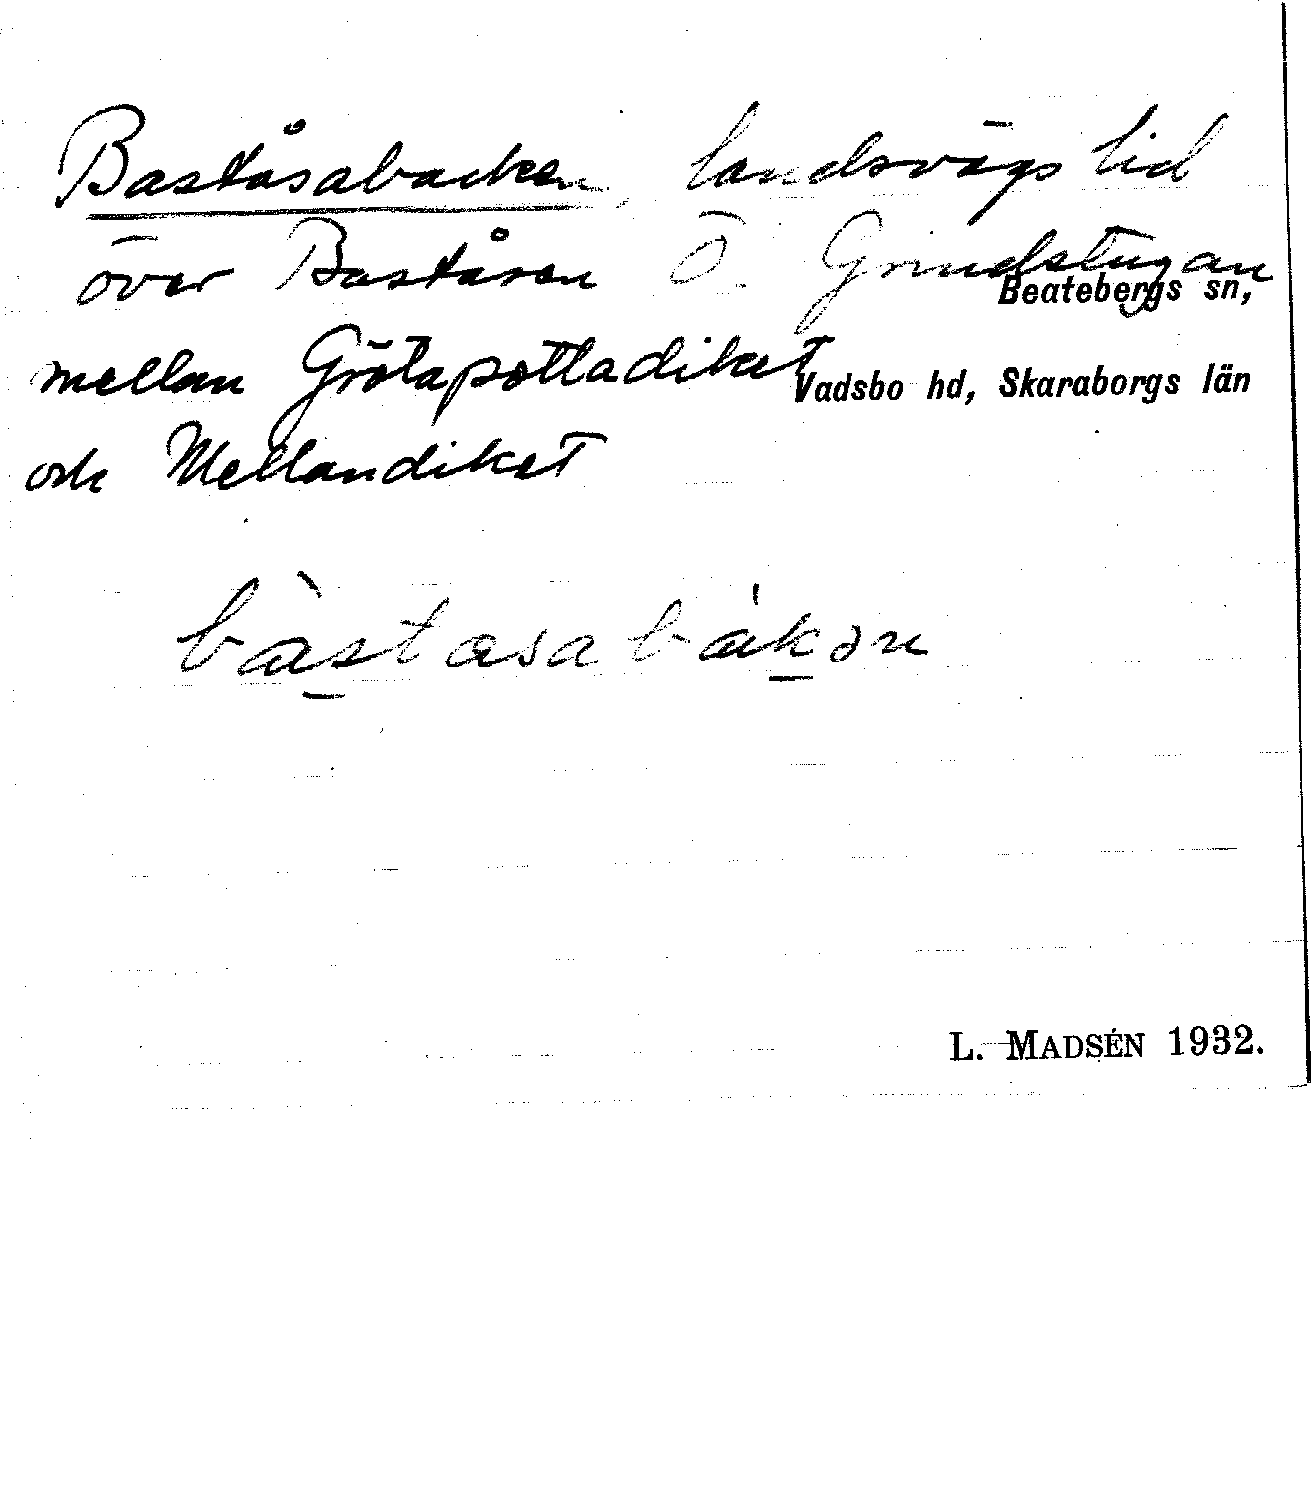 Baståsabacken, landsvägslid
över Baståsen Ö. Grindstugan
Beatebergs sn,
mellan Grötapottadiket
Vadsbo hd, Skaraborgs län
och Mellandiket
bàstasabákən
L. MADSÉN 1932.